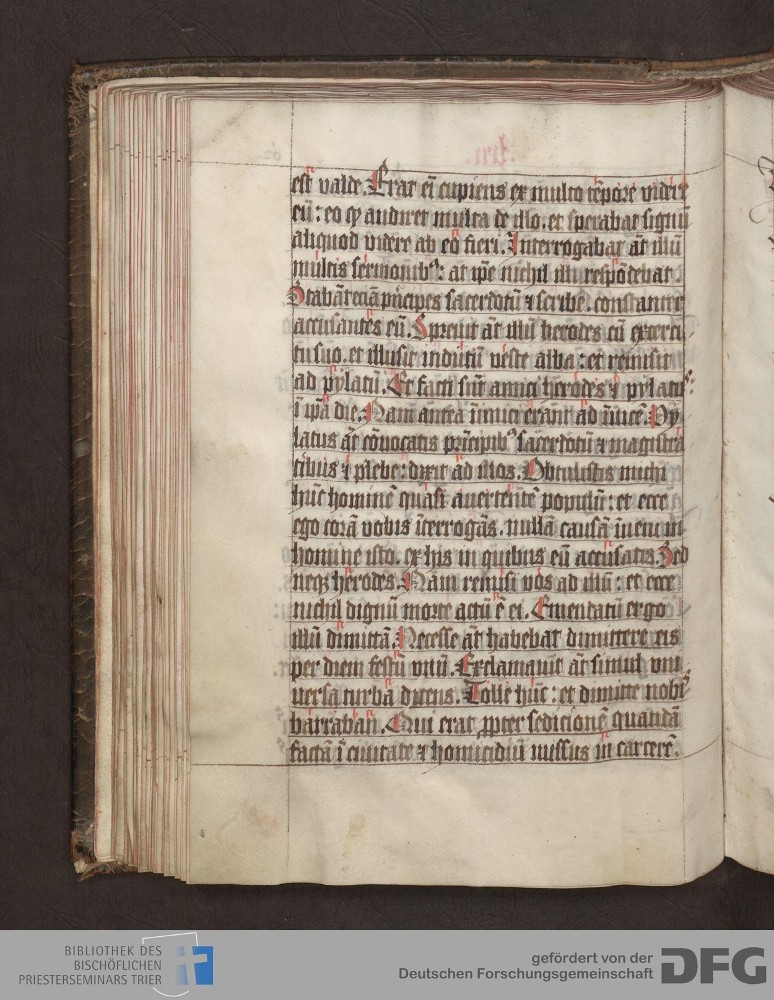 est valde. Erat em̄ cupiens ex multo tp̄ore videre
eū: eo qꝫ audiret multa de illo. et sperabat signū
aliquod videre ab eo fieri. Interrogabat āt illū
multis sermonibꝰ: at ip̄e nichil illi respōdebat.
Stabāt eciā p̄ncipes sacerdotū ⁊ scribe. constanter
accusantes eū. Spreuit āt illū herodes cū exerci
tu suo. et illusit indutū veste alba: et remisit
ad pylatū. Et facti sūt amici herodes ⁊ pylatꝰ:
ī ip̄a die. Nam antea īimici erant ad īuicē. Py
latus āt cōuocatis principibꝰ sacerdotū ⁊ magistra
tibus ⁊ plebe: dixit ad illos. Obtulistis michi
hūc hominē quasi auertentē populū: et ecce
ego corā vobis īterrogās. nullā causā īueni in
homine isto. ex his in quibus eū accusatis. Sed
neqꝫ herodes. Nam remisi vos ad illū: et ecce
nichil dignū morte actū ē ei. Emendatū ergo
illū dimittā. Necesse āt habebat dimittere eis
per diem festū vnū. Exclamauit āt simul vni
uersa turba dicens. Tolle hūc: et dimitte nobꝭ
barraban. Qui erat ꝓpter sedicionē quandā
factā ī ciuitate ⁊ homicidiū missus in carcerē.
BIBLIOTHEK DES
BISCHÖFLICHEN
PRIESTERSEMINARS TRIER
gefördert von der
Deutschen Forschungsgemeinschaft
DFG